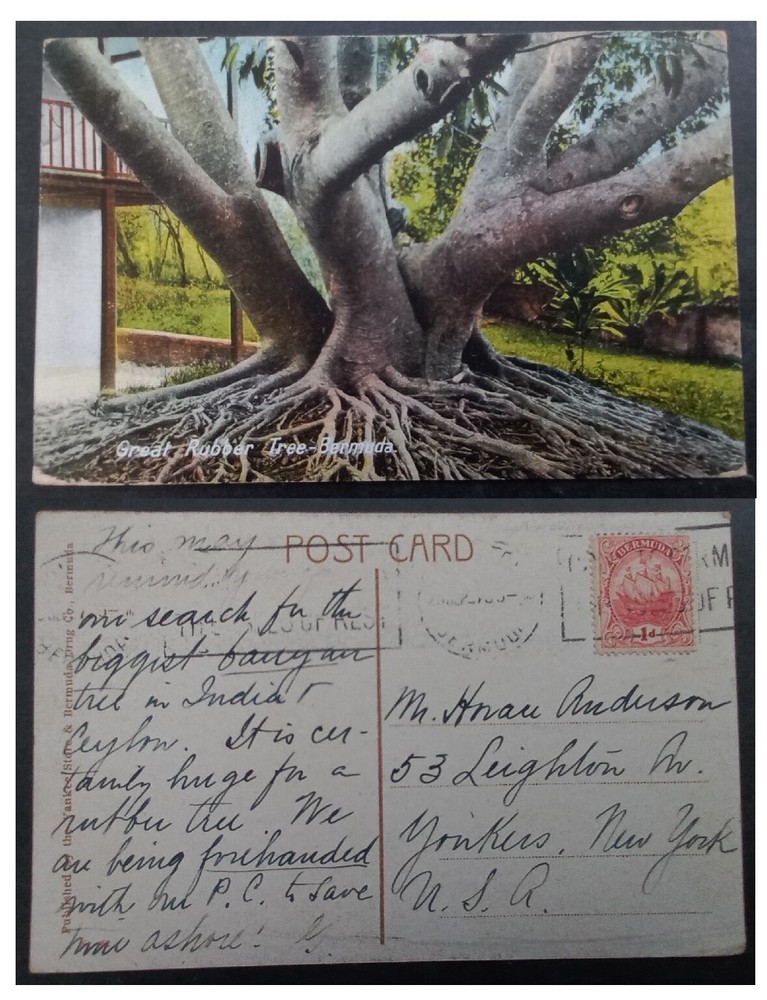 Great Rubber Tree - Bermuda.
POST CARD
This may
remind
our search for the
biggest banyan
tree in India +
Ceylon. It is cer-
tainly huge for a
rubber tree. We
are being forehanded
with our P. C. to save
time ashore! G.
Published by the Yankee Store & Bermuda Drug Co., Bermuda
BERMUDA
1d
Mr. Horace Anderson
53 Leighton Av.
Yonkers, New York
U. S. A.